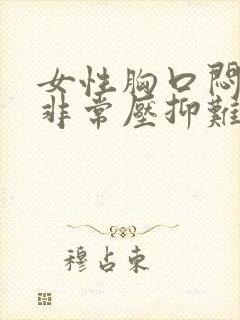 女性胸口悶
非常壓抑難
穆占東